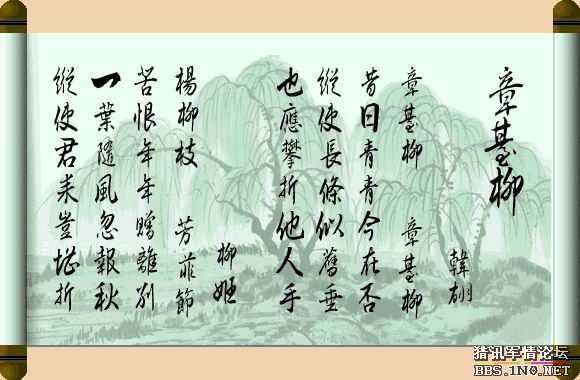 章臺柳
韓翃
章臺柳 章臺柳
昔日青青今在否
縱使長條似舊垂
也應攀折他人手
柳姬
楊柳枝 芳菲節
苦恨年年贈離別
一葉隨風忽報秋
縱使君来豈堪折
猎讯军情论坛
BBS.1N0.NET